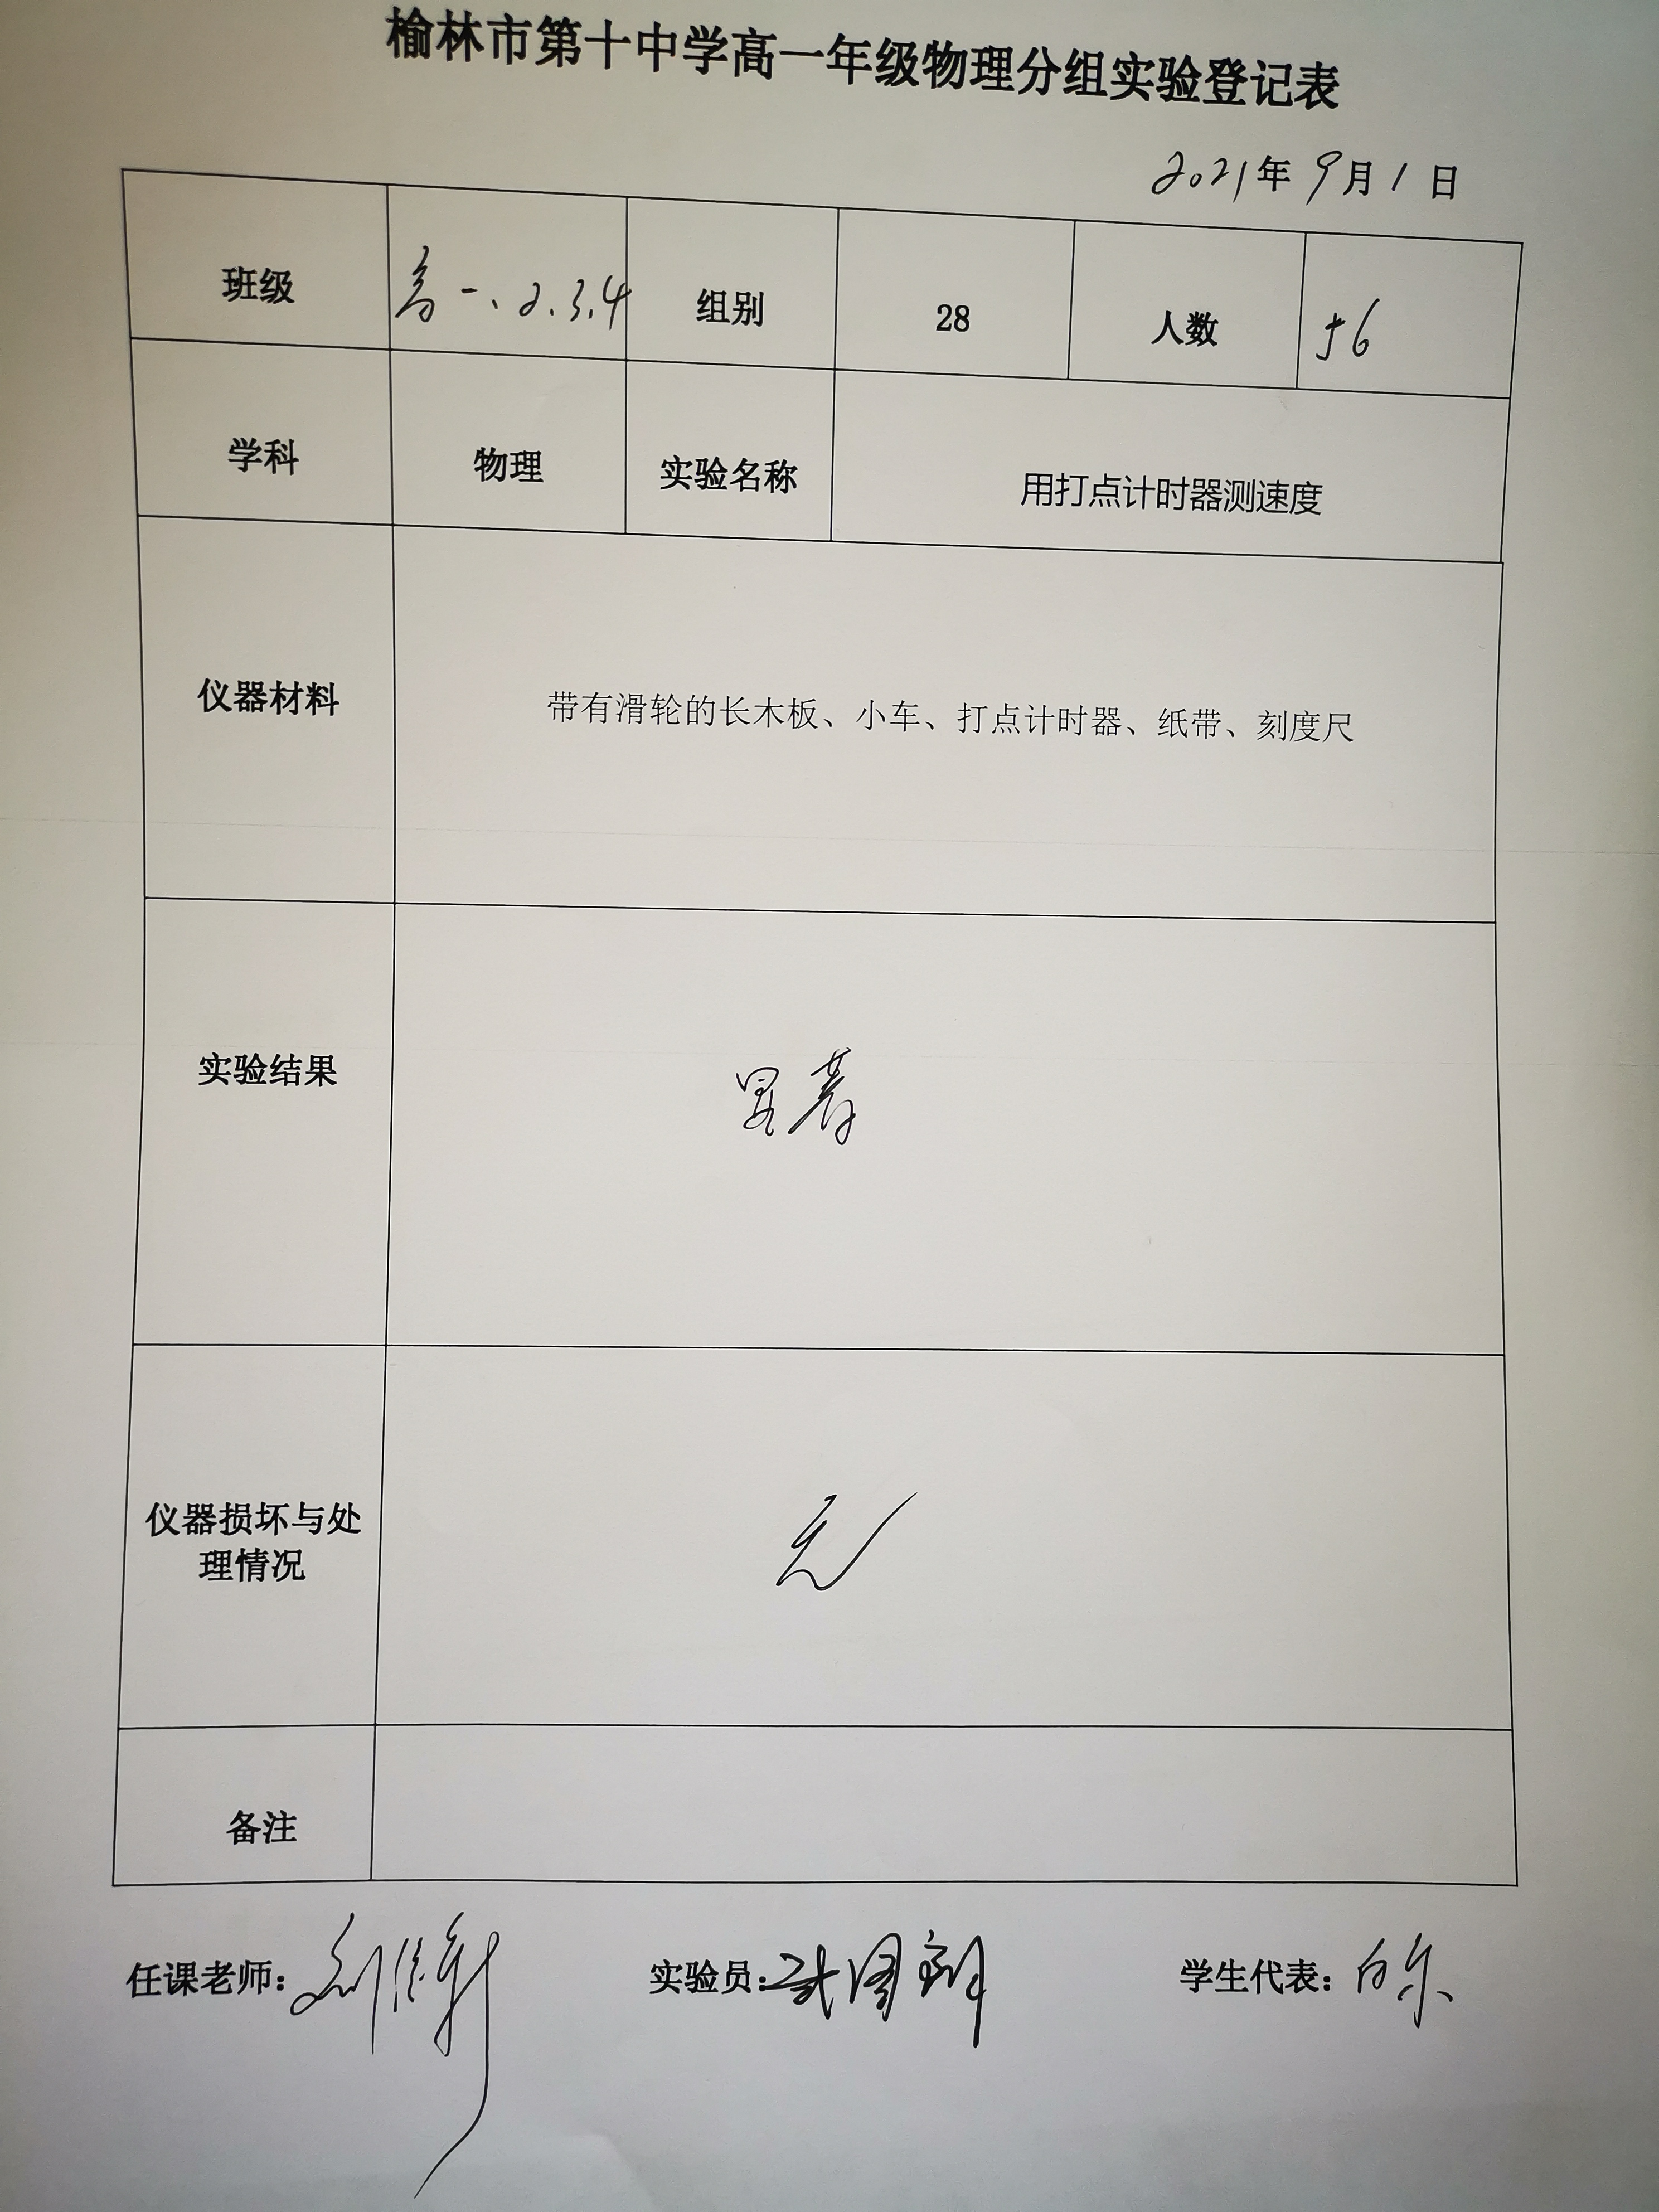 榆林市第十中学高一年级物理分组实验登记表
2021年9月1日
班级 高一、2.3.4 组别 28 人数 56
学科 物理 实验名称 用打点计时器测速度
仪器材料 带有滑轮的长木板、小车、打点计时器、纸带、刻度尺
实验结果 显著
仪器损坏与处
理情况 无
备注
任课老师: 实验员: 学生代表: